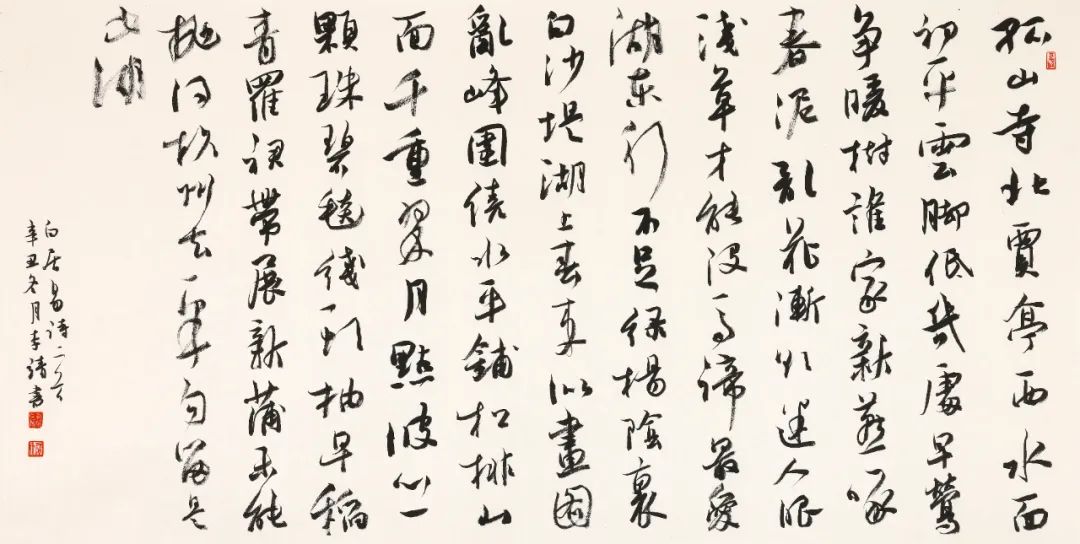 孤山寺北賈亭西水面
初平雲脚低幾處早鶯
争暖樹誰家新燕啄
春泥乱花漸欲迷人眼
浅草才能没马蹄最愛
湖东行不足绿楊陰裏
白沙堤湖上春来似畫圖
亂峰圍繞水平鋪松排山
面千重翠月點波心一
顆珠碧毯綫頭抽早稻
青羅裙帶展新蒲未能
抛得杭州去一半勾留是
此湖
白居易诗二首
辛丑冬月李书